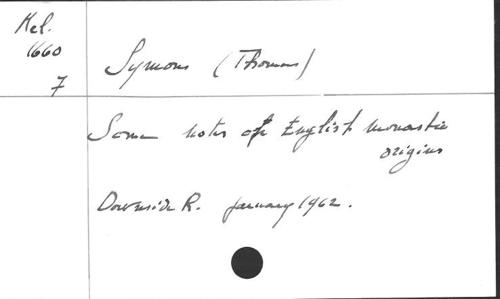 Mel.
1660
7
Symons (Thomas)
Some notes of English monastic
origins
Downside R. January 1962.